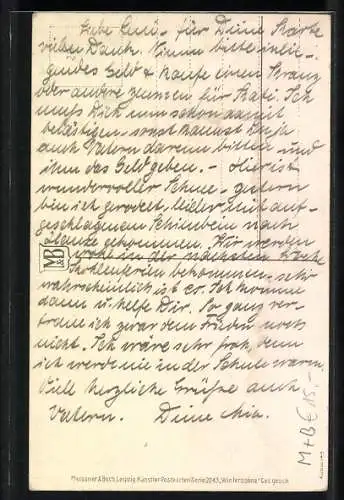 Liebe Omi - für Deine Karte
vielen Dank. Nimm bitte inlie-
gendes Geld & kaufe einen Kranz
oder andere für Kati. Ich
muss Dich nun schon damit
belästigen - sonst kannst Du ja
auch Vatern darum bitten und
ihm das Geld geben. - Hier ist
wundervoller Schnee - gestern
bin ich gerodelt, leider mit auf-
geschlagenem Schienbein nach
gekommen. Wir werden
wohl in der nächsten Woche
Ferien bekommen, sehr
wahrscheinlich ist es. Ich komme
dann u. helfe Dir. So ganz ver-
traue ich zwar dem Frieden noch
nicht. Ich wäre sehr froh, denn
ich werde nie in der Schule warm.
Viel herzliche Grüße auch
Vatern. Deine Mia.
M&B
M+B € 15,-
Meissner & Buch, Leipzig Künstler-Postkarten Serie 2043, "Winterssonne" Ges. gesch.